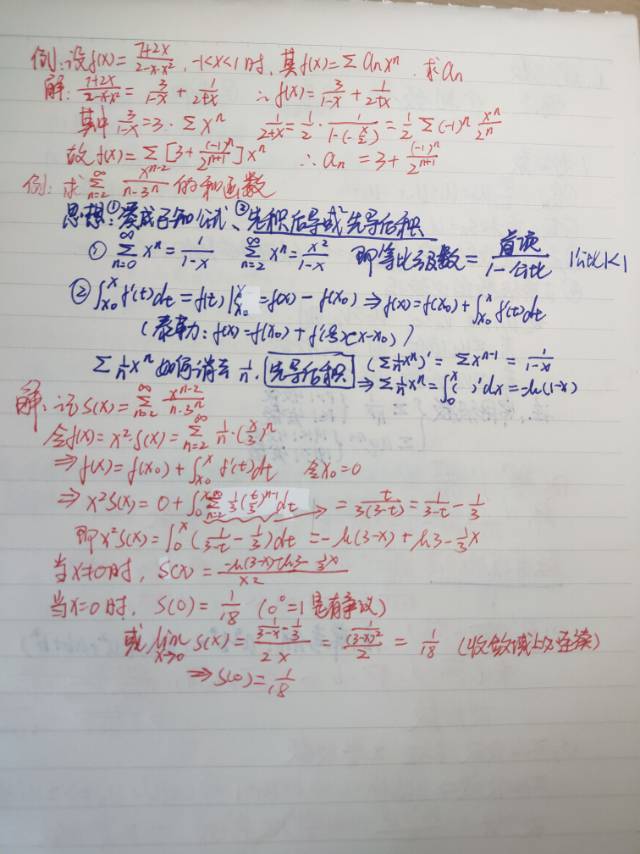 例:设f(x)=\frac{7+2x}{2-x-x²}, -1<x<1时, 其f(x)=∑aₙxⁿ. 求aₙ
解: \frac{7+2x}{2-x-x²}=\frac{3}{1-x}+\frac{1}{2+x} ∴f(x)=\frac{3}{1-x}+\frac{1}{2+x}
其中\frac{3}{1-x}=3·∑xⁿ \frac{1}{2+x}=\frac{1}{2}·\frac{1}{1-(-\frac{x}{2})}=\frac{1}{2}∑(-1)ⁿ\frac{xⁿ}{2ⁿ}
故f(x)=∑[3+\frac{(-1)ⁿ}{2^{n+1}}]xⁿ ∴aₙ=3+\frac{(-1)ⁿ}{2^{n+1}}
例:求\sum_{n=2}^{∞}\frac{x^{n-2}}{n·3ⁿ}的和函数
思想:①变成已知公式、②先积后导或先导后积
①\sum_{n=0}^{∞}xⁿ=\frac{1}{1-x} \sum_{n=2}^{∞}xⁿ=\frac{x²}{1-x} 即等比级数=\frac{首项}{1-公比} |公比|<1
②\int_{x₀}^{x}f'(t)dt=f(t)|_{x₀}^{x}=f(x)-f(x₀)⇒f(x)=f(x₀)+\int_{x₀}^{x}f'(t)dt
(泰勒:f(x)=f(x₀)+f'(ξ)(x-x₀))
∑\frac{1}{n}xⁿ如何消去\frac{1}{n}.先导后积 (∑\frac{1}{n}xⁿ)'=∑x^{n-1}=\frac{1}{1-x}
⇒∑\frac{1}{n}xⁿ=\int_{0}^{x}( )'dx=-ln(1-x)
解:记S(x)=\sum_{n=2}^{∞}\frac{x^{n-2}}{n·3ⁿ}
令f(x)=x²·S(x)=\sum_{n=2}^{∞}\frac{1}{n}·(\frac{x}{3})ⁿ
⇒f(x)=f(x₀)+\int_{x₀}^{x}f'(t)dt 令x₀=0
⇒x²S(x)=0+\int_{0}^{x}\sum_{n=2}^{∞}\frac{1}{3}(\frac{t}{3})^{n-1}dt =\frac{t}{3(3-t)}=\frac{1}{3-t}-\frac{1}{3}
即x²S(x)=\int_{0}^{x}(\frac{1}{3-t}-\frac{1}{3})dt=-ln(3-x)+ln3-\frac{1}{3}x
当x≠0时, S(x)=\frac{-ln(3-x)+ln3-\frac{1}{3}x}{x²}
当x=0时, S(0)=\frac{1}{18} (0⁰=1是有争议)
或\lim_{x→0}S(x)=\frac{\frac{1}{3-x}-\frac{1}{3}}{2x}=\frac{\frac{1}{(3-x)²}}{2}=\frac{1}{18} (收敛域上必连续)
⇒S(0)=\frac{1}{18}